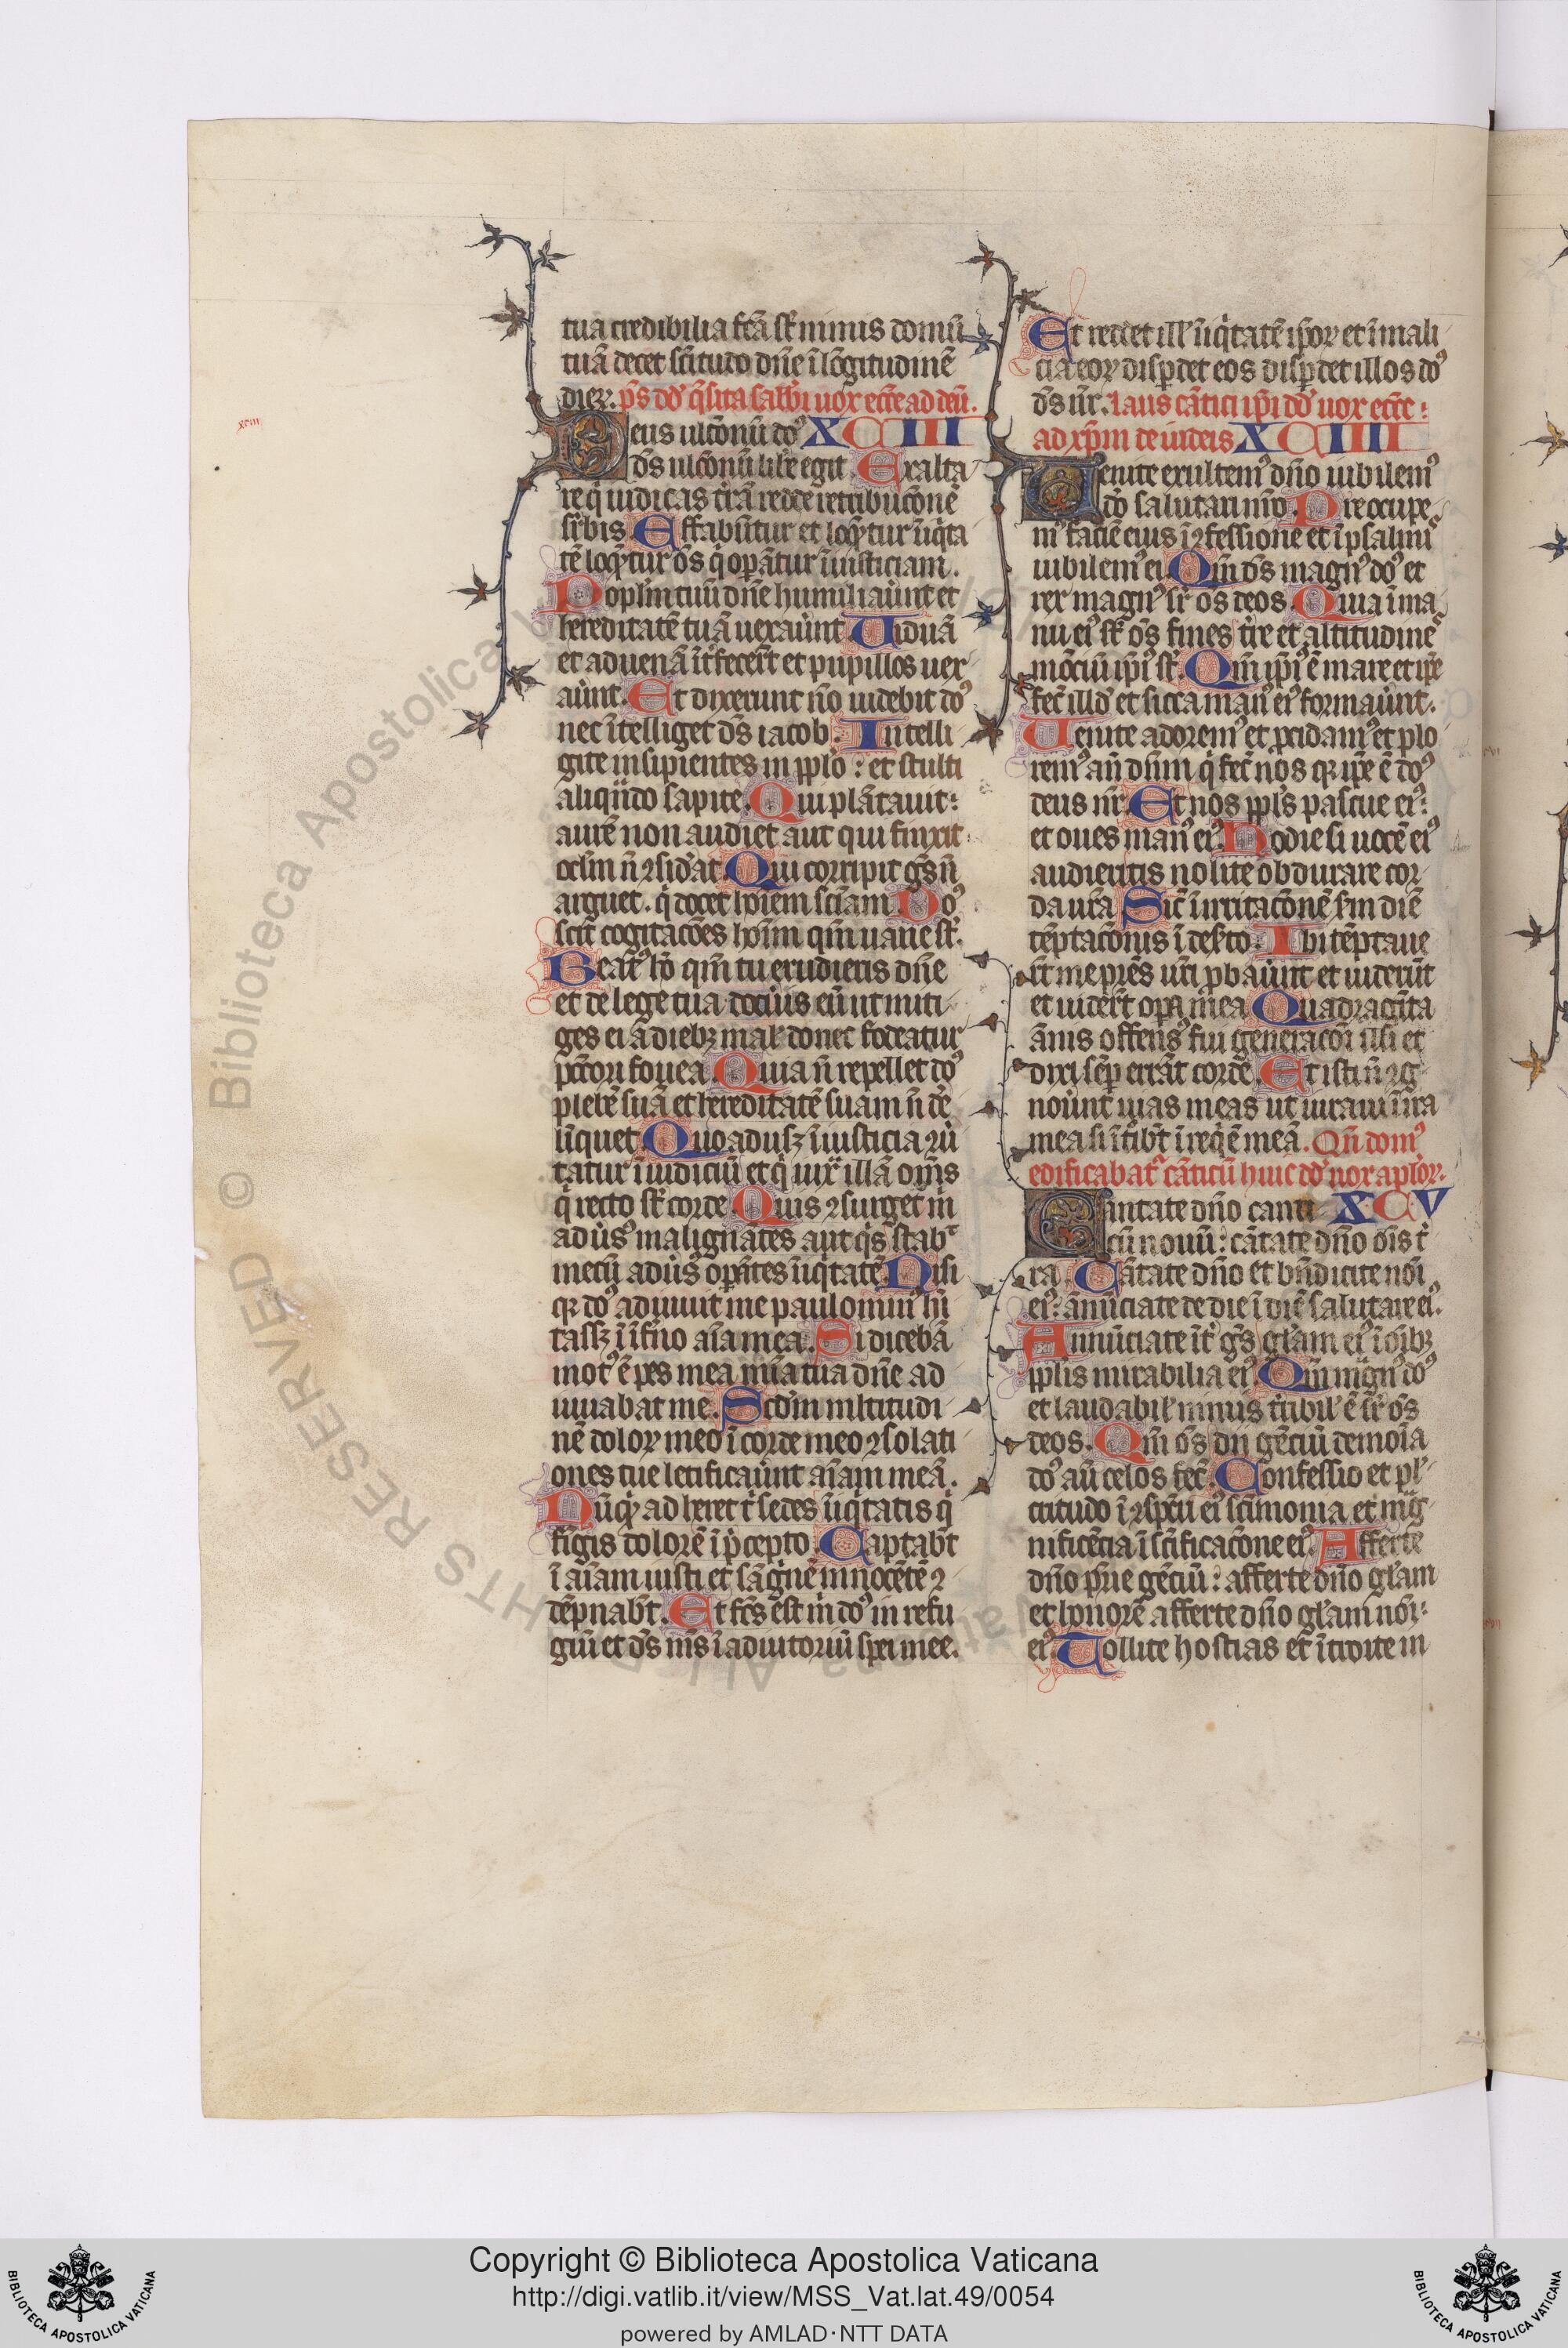 tua credibilia fc̄a st̄ nimis domū
tuā decet sc̄itudo dn̄e ī lōgitudinē
dieꝝ. ps̄ dd̓ q̄rta sabb̓i uox ecc̄e ad deū.
Deus ulc̄onū do᷒ XCIII
ds̄ ulc̄onū lib̓e egit. Exalta
re q̓ iudicas t̓rā redde retribuc̄onē
sr̄bis. Effabūtur et loq̄ntur īiq̓ta
tē loq̄ntur oēs q̓ op̄ātur īiusticiam.
Popl̓m tuū dn̄e humiliauūt et
hereditatē tuā uexauūt. Uiduā
et aduenā īt̓fecer̄t et pupillos uex
auūt. Et dixerunt nō uidebit do᷒
nec ītelliget ds̄ iacob. Intelli
gite insipientes in ꝑplo : et stulti
aliqn̄do sapite. Qui plātauit:
aurē non audiet aut qui finxit
ocl̓m n̄ ꝯsid̓at. Qui corripit gēs n̄
arguet. q̓ docet hoīem sciam. Do᷒
scit cogitac̄ōes hoīm qm̄ uane st̄.
Beat᷒ hō qm̄ tu erudieris dn̄e
et de lege tua docu̓is eū ut miti
ges ei a diebꝫ mal̓ donec fodeatur
pc̄c̄ori fouea. Quia n̄ repellet do᷒
plebē suā et hereditatē suam n̄ de
līquet. Quoadusqꝫ īusticia ꝯu̓
tatur ī iudiciū et q̓ iux̄ illā oms̄
q̓ recto st̄ corde. Quis ꝯsurget m̓
adu̓s᷒ malignātes aut q̓s stab̓t
mecū adu̓s᷒ op̄ātes īiq̓tatē. Nisi
qꝛ do᷒ adiuuit me paulomin᷒ h̓i
tassꝫ ī īfno aīa mea. Si dicebā
mot᷒ ē pes mea mīa tua dn̄e ad
iuuabat me. Scd̓m mltitudi
nē doloꝝ meo ī corde meo ꝯsolati
ones tue letificau̓unt aīam meā.
Nūq̓ ad heret t̓ sedes īiq̓tatis q̓
fīgis dolorē ī p̄cepto. Captabt̄
ī aīam iusti et sāguinē innocētē ꝯ
dēpnabt̄. Et fc̄s est m̓ do᷒ in refu
giū et ds̄ ms̄ ī adiutoriū spei mee.
Et reddet ill̓ īiq̓tatē ip̄oꝝ et ī mali
cia eoꝝ disp̄det eos disp̄det illos do᷒
ds̄ nr̄. laus cātici ip̄i dd̓ uox ecc̄e :
ad xp̄m de iudeis XCIIII
Uenite exultem᷒ dn̄o iubilem᷒
dō salutari nr̄o. Preocupe
m᷒ faciē eius ī ꝯfessione et ī psalmi᷒
iubilem᷒ ei. Qm̄ ds̄ magn᷒ do᷒ et
rex magn᷒ sr̄ os̄ deos. Quia ī ma
nu ei᷒ st̄ os̄ fines t̓re et altitudinē
mōciū ip̄i᷒ st̄. Qm̄ ip̄i᷒ ē mare et ip̄e
fec̄ illd̓ et sicca man᷒ ei᷒ formau̓nt.
Uenite adorem᷒ et pcidam᷒ et plo
rem᷒ an̄ dn̄m q̓ fec̄ nos qꝛ ip̄e ē do᷒
deus nr̄. Et nos ppl̓s pascue ei᷒:
et oues man᷒ ei᷒. Hodie si uocē ei᷒
audieritis nolite obdurare cor
da ur̄a. Sic̄ ī irritac̄onē s̄m diē
tēptac̄onis ī des̓to. Ibi tēptaue
r̄t me pr̄es uri p̄bauūt et uiderūt
et uider̄t opa mea. Quadragīta
ānis offens᷒ fui generac̄oi illi et
dixi sēp errāt corde. Et isti n̄ ꝯg
nou̓nt uias meas ut iuraui ī ira
mea si ītibt̄ ī reqē meā. Qn̄ dom᷒
edificabat᷒ cāticū huic dd̓ uox apl̓oꝝ.
Cantate dn̄o canti XCV
cū nouū : cātate dn̄o ois t̓
ra. Cātate dn̄o et bn̄dicite noī
ei᷒: ānūciate de die ī diē salutare ei᷒.
Annūciate īt̓ gēs gl̓am ei᷒ ī oībꝫ
ꝑplis mirabilia ei᷒. Qm̄ mgn᷒ do᷒
et laudabil̓ nimis t̓ribil̓ ē sr̄ os̄
deos. Qm̄ os̄ dii gēciū demoīa
do᷒ aū celos fec̄. Confessio et pl̓
critudo ī ꝯspc̄u ei᷒ sc̄imonia et mg̓
nificēcia ī sc̄ificac̄one ei᷒. Afferte
dn̄o pr̄ie gēciū : afferte dn̄o gl̓am
et honorē afferte dn̄o gl̓am noī:
ei᷒. Tollite hostias et ītroite in
xciii
© Biblioteca Apostolica Vaticana ALL RIGHTS RESERVED
Copyright © Biblioteca Apostolica Vaticana
http://digi.vatlib.it/view/MSS_Vat.lat.49/0054
powered by AMLAD·NTT DATA
BIBLIOTECA APOSTOLICA VATICANA
BIBLIOTECA APOSTOLICA VATICANA